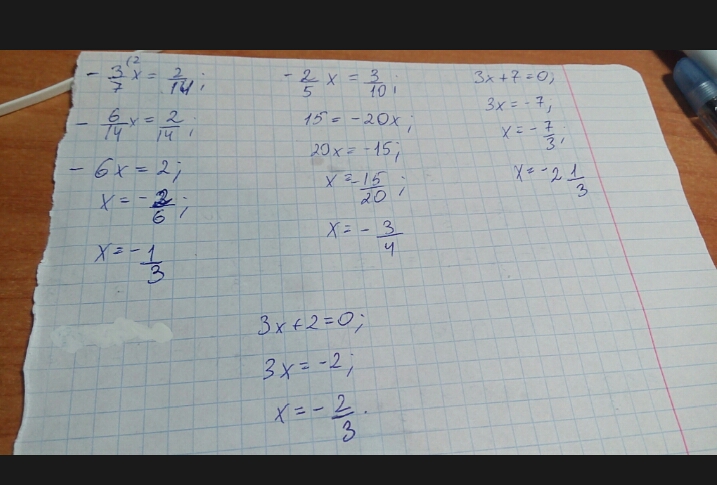 -3/7 x = 2/14; (2
-6/14 x = 2/14;
-6x = 2;
x = -2/6;
x = -1/3
-2/5 x = 3/10;
15 = -20x;
20x = -15;
x = -15/20;
x = -3/4
3x+7=0;
3x = -7;
x = -7/3;
x = -2 1/3
3x+2=0;
3x = -2;
x = -2/3.